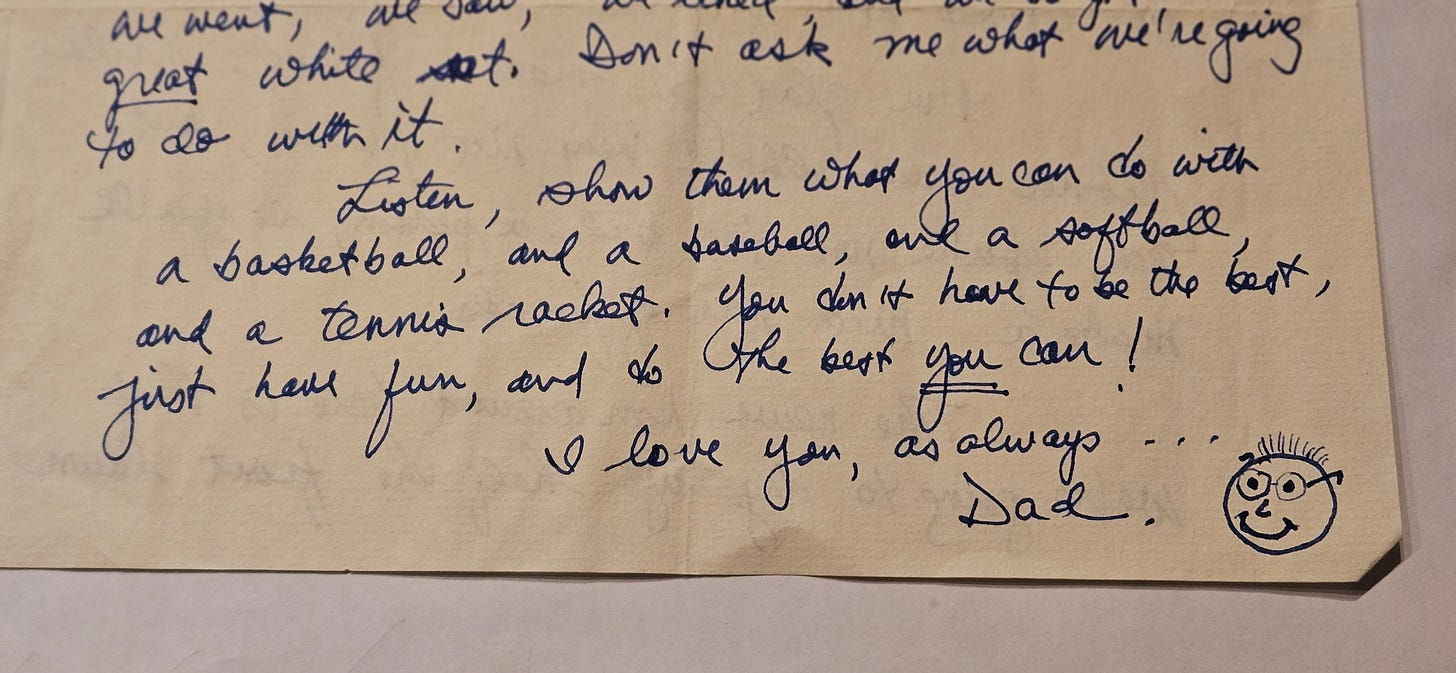 we went, we saw, we
great white
. Don't ask me what we're going
to do with it.
Listen, show them what you can do with
a basketball, and a baseball, and a softball,
and a tennis racket. You don't have to be the best,
just have fun, and do the best you can!
I love you, as always ...
Dad.